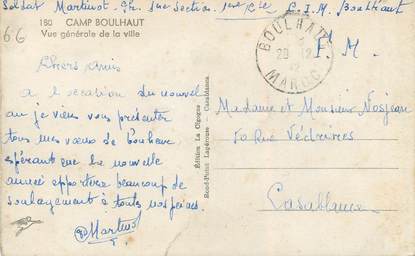 Soldat Martinot Ch. 3me Section 1ere Cie C.I.M. Boulhaut
180 CAMP BOULHAUT
Vue générale de la ville
6.6
BOULHAUT
29 12
MAROC
F. M.
Chers amis
a l'occasion du nouvel
an je viens vous présenter
tous mes voeux de bonheur
espérant que la nouvelle
année apportera beaucoup de
soulagement à toutes nos peines.
Martinot
Editions La Cigogne Casablanca
Rond-Point Lapérouse
Madame et Monsieur Nosjean
Rue Védrines
Casablanca